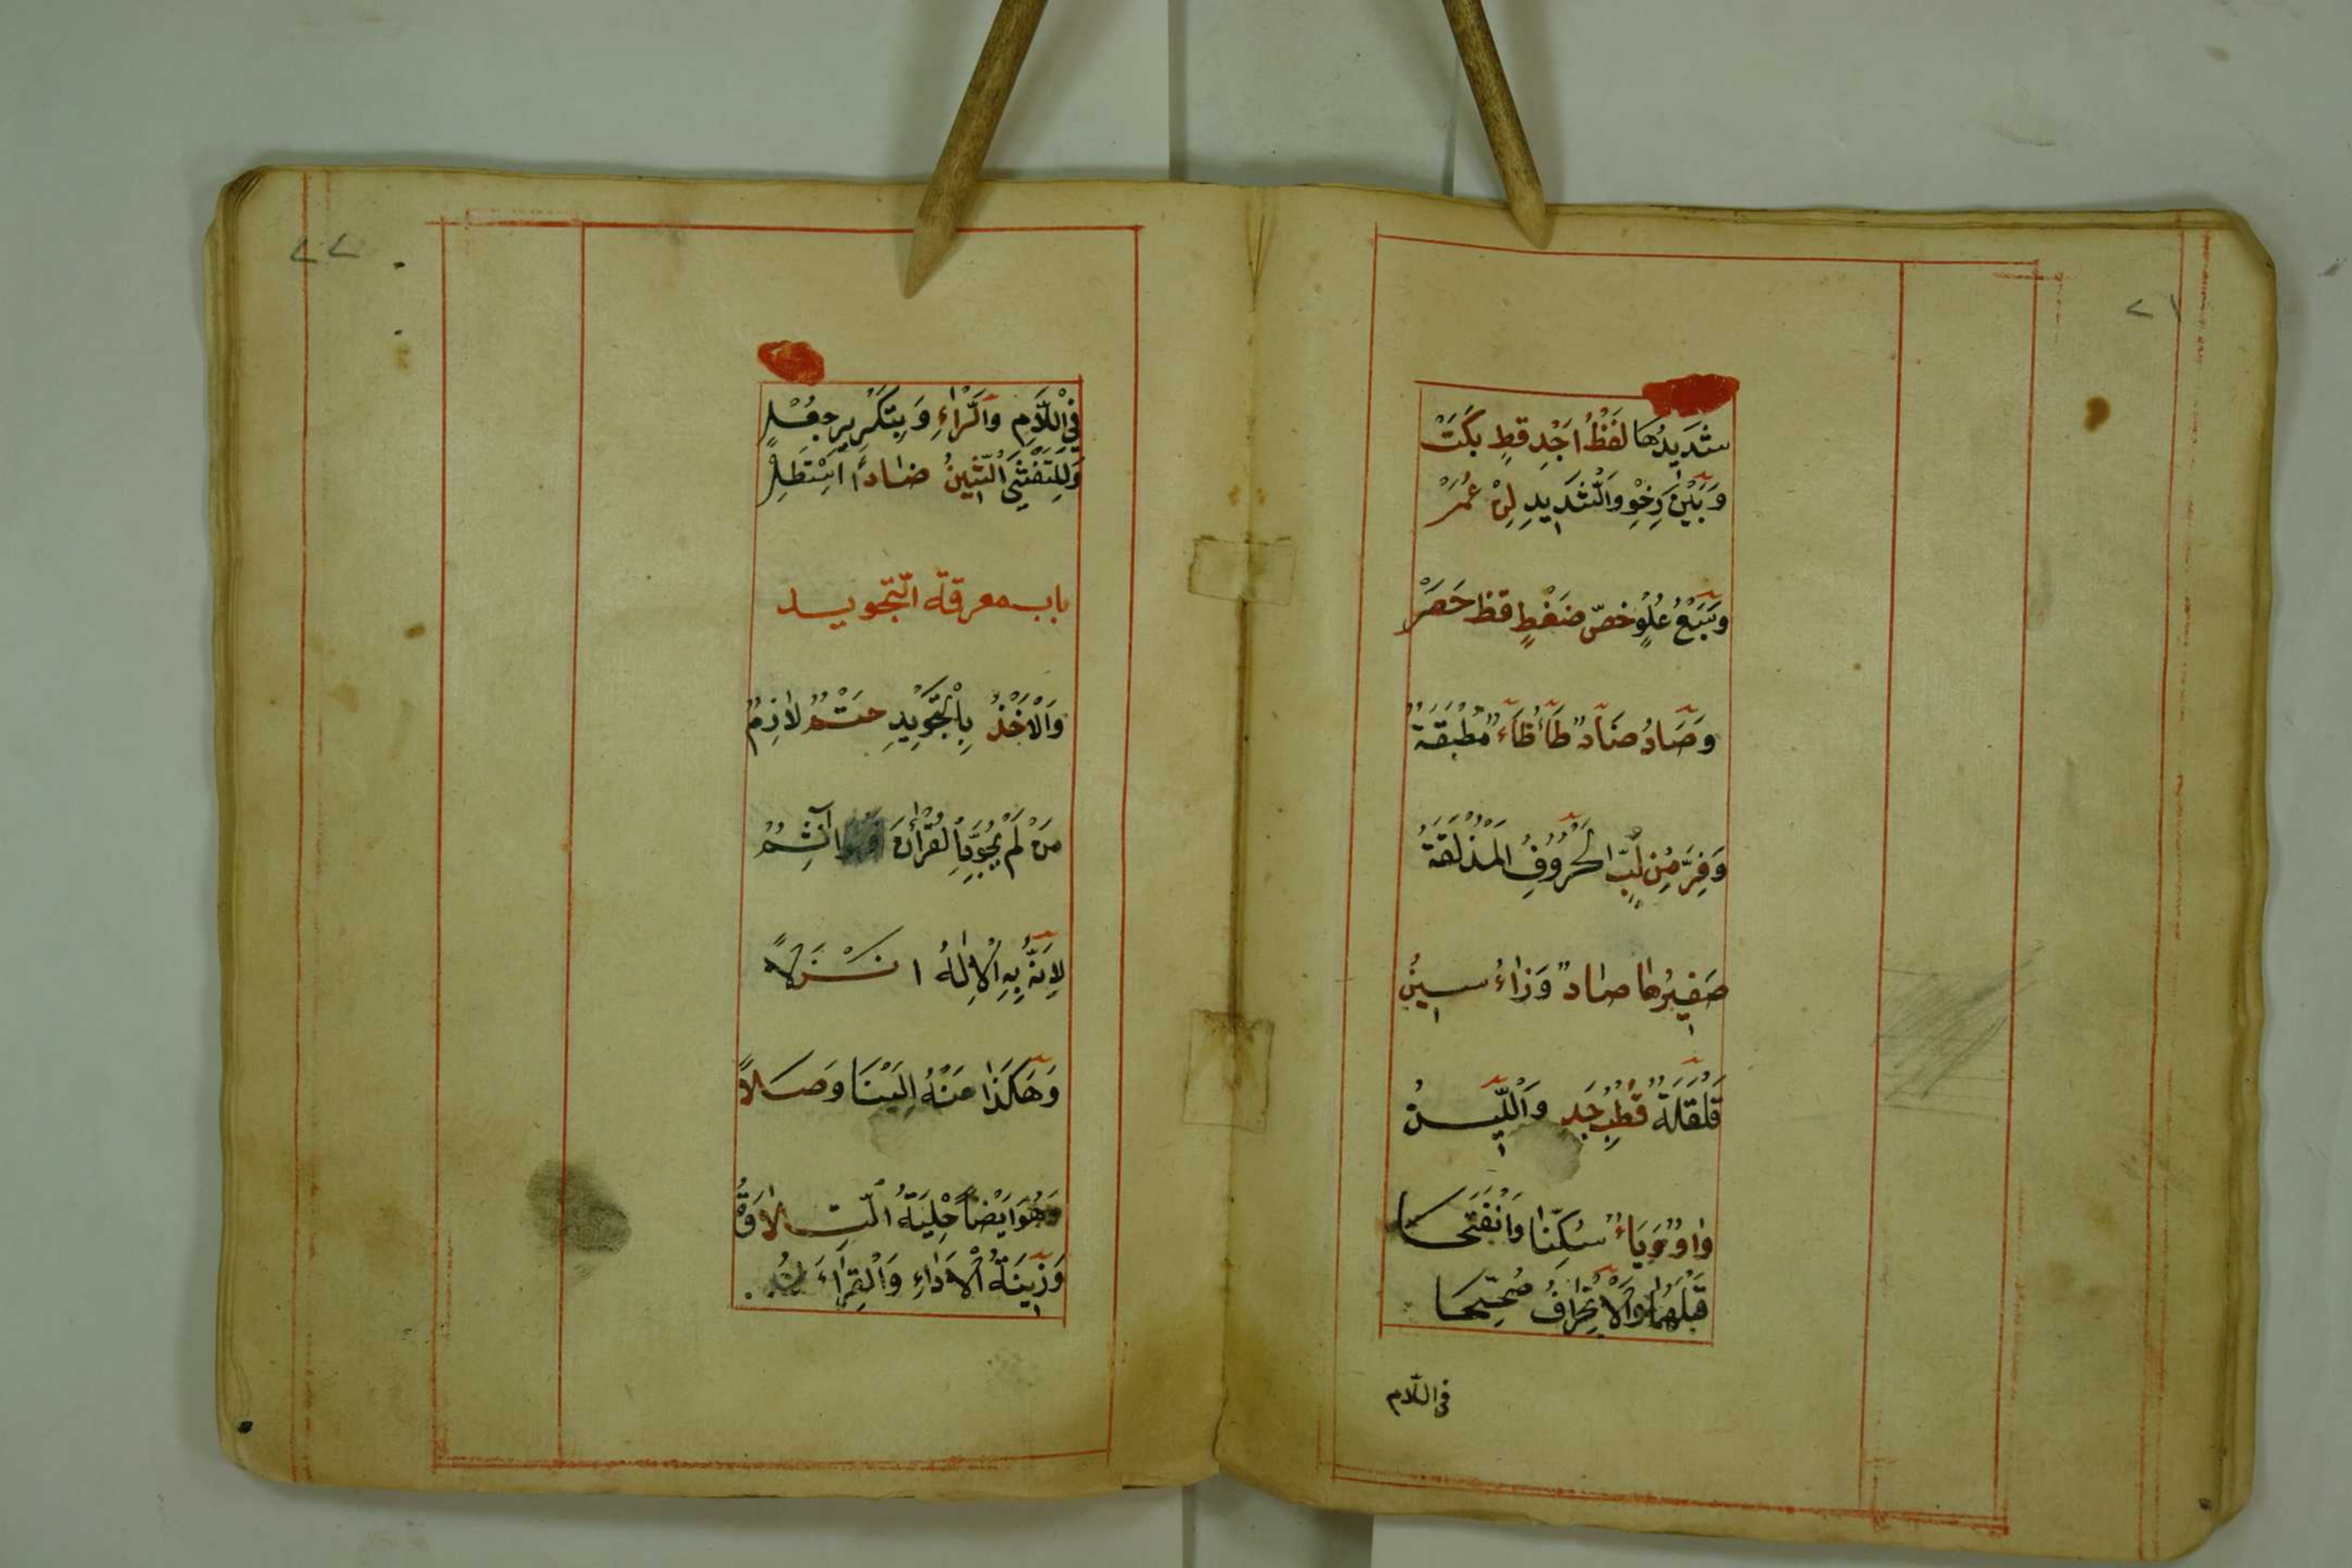 ٢١
شَدِيدُهَا لَفْظُ اَجْدِ قَطٍ بَكَتْ
وَبَيْنَ رِخْوٍ وَالشَّدِيدِ لِنْ عُمَرْ
وَسَبْعُ عُلْوٍ خصّ ضَغْطٍ قظ حَصَرْ
وَصَادُ ضَادٌ طَاءُ ظَاءٌ مُطْبَقَةٌ
وَفِرَّ مِنْ لُبِّ الْحُرُوفِ الْمُذْلَقَةُ
صَفِيرُهَا صَادٌ وَزَاءُ سِينُ
قَلْقَلَةٌ قُطْبُ جَدٍ وَاللِّينُ
وَاوٌ وَيَاءٌ سُكِّنَا وَانْفَتَحَا
قَبْلَهُمَا وَالْاِنْحِرَافُ صُحِّحَا
فى اللّام
٢٢
فِي اللَّامِ وَالرَّاءِ وَبِتَكْرِيرٍ جُعِلْ
وَلِلتَّفَشِّي الشِّينُ ضَادًا اسْتَطِلْ
باب معرفة التّجويد
وَالْاَخْذُ بِالتَّجْوِيدِ حَتْمٌ لَازِمٌ
مَنْ لَمْ يُجَوِّدِ الْقُرْاٰنَ فَهُوَ آثِمُ
لِاَنَّهُ بِهِ الْاِلٰهُ اَنْزَلَاً
وَهَكَذَا مِنْهُ اِلَيْنَا وَصَلَاً
وَهُوَ اَيْضًا حِلْيَةُ التِّلَاوَةُ
وَزِينَةُ الْاَدَاءِ وَالْقِرَاءَةُ